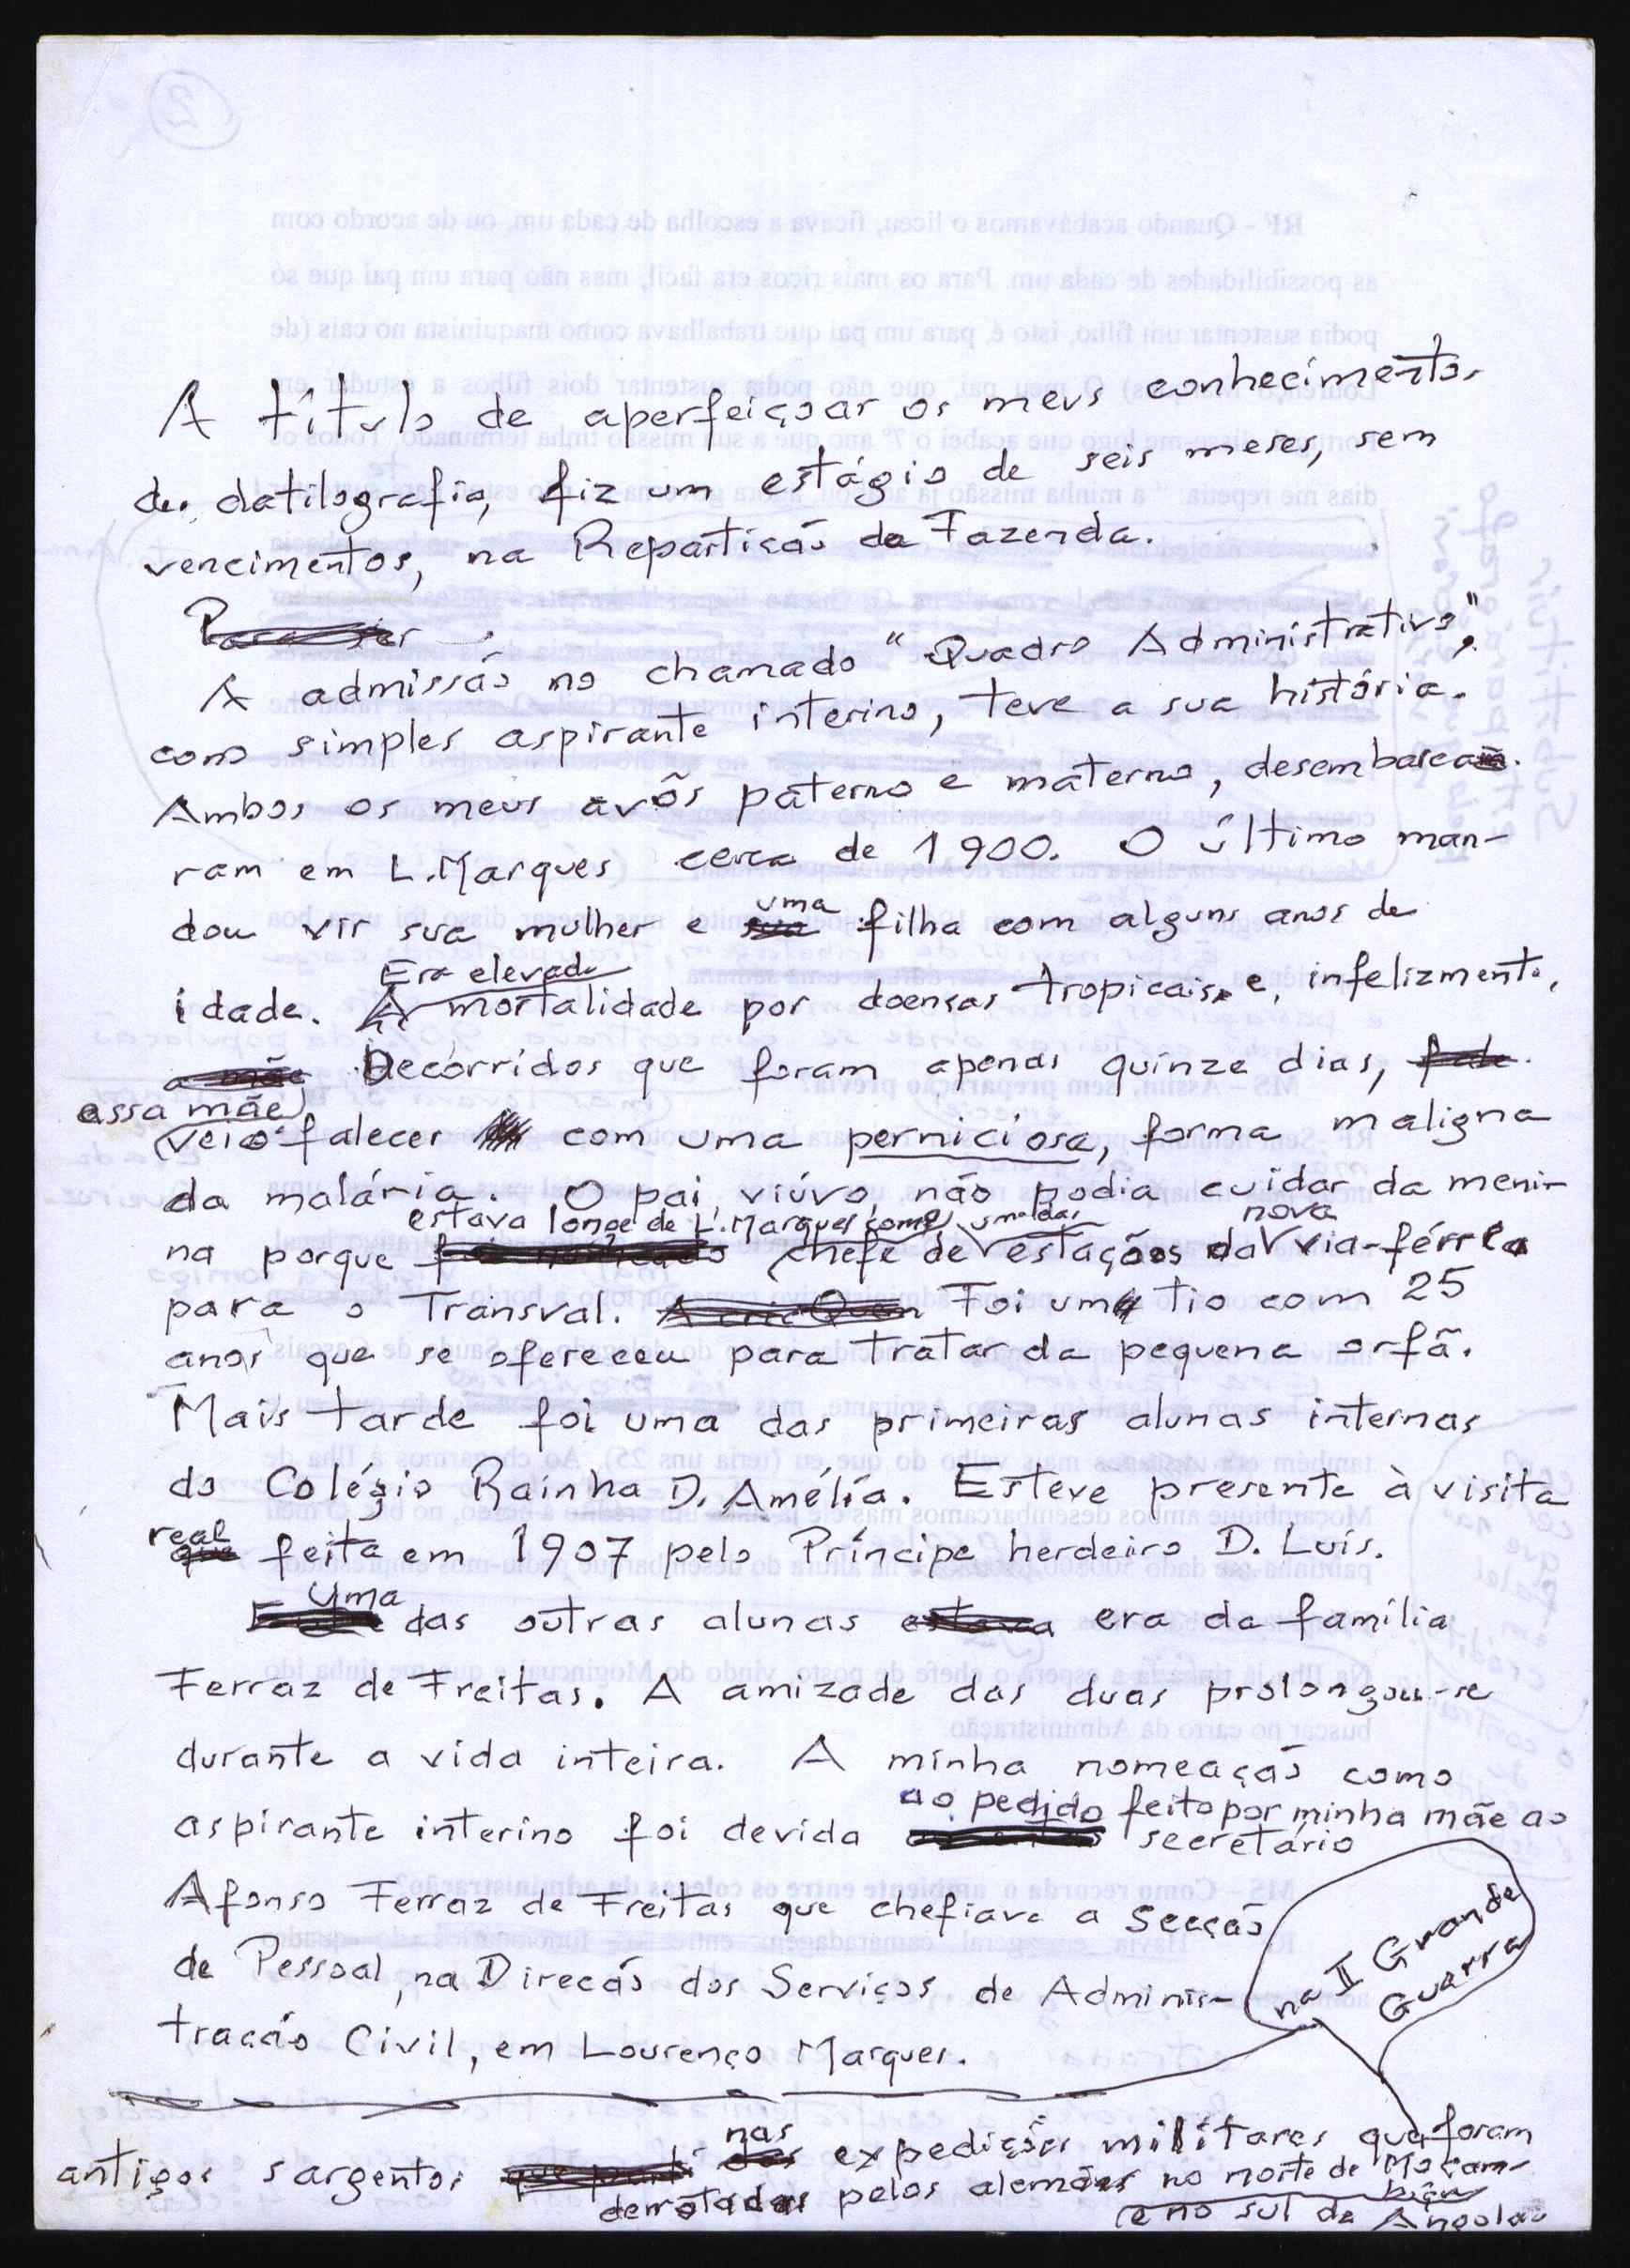 A título de aperfeiçoar os meus conhecimentos
de datilografia, fiz um estágio de seis meses, sem
vencimentos, na Repartição da Fazenda.
A admissão no chamado "Quadro Administrativo",
como simples aspirante interino, teve a sua história.
Ambos os meus avôs paterno e materno, desembarca-
ram em L. Marques cerca de 1900. O último man-
dou vir sua mulher e uma filha com alguns anos de
idade. Era elevada A mortalidade por doenças tropicais e, infelizmente,
Decorridos que foram apenas quinze dias,
essa mãe
veio falecer com uma perniciosa, forma maligna
da malária. O pai, viúvo, não podia cuidar da meni-
estava longe de L. Marques como uma das nova
na porque chefe de estações da via-férrea
para o Transval. Foi um tio com 25
anos que se ofereceu para tratar da pequena orfã.
Mais tarde foi uma das primeiras alunas internas
do Colégio Raínha D. Amélia. Esteve presente à visita
real feita em 1907 pelo Príncipe herdeiro D. Luís.
Uma das outras alunas era da família
Ferraz de Freitas. A amizade das duas prolongou-se
durante a vida inteira. A minha nomeação como
ao pedido feito por minha mãe ao
aspirante interino foi devida secretário
Afonso Ferraz de Freitas que chefiava a Secção
de Pessoal, na Direcão dos Serviços de Adminis-
tração Civil, em Lourenço Marques.
na II Grande
Guerra
antigos sargentos nas expedições militares que foram
derrotadas pelos alemães no norte de Moçam-
bique
e no sul de Angola